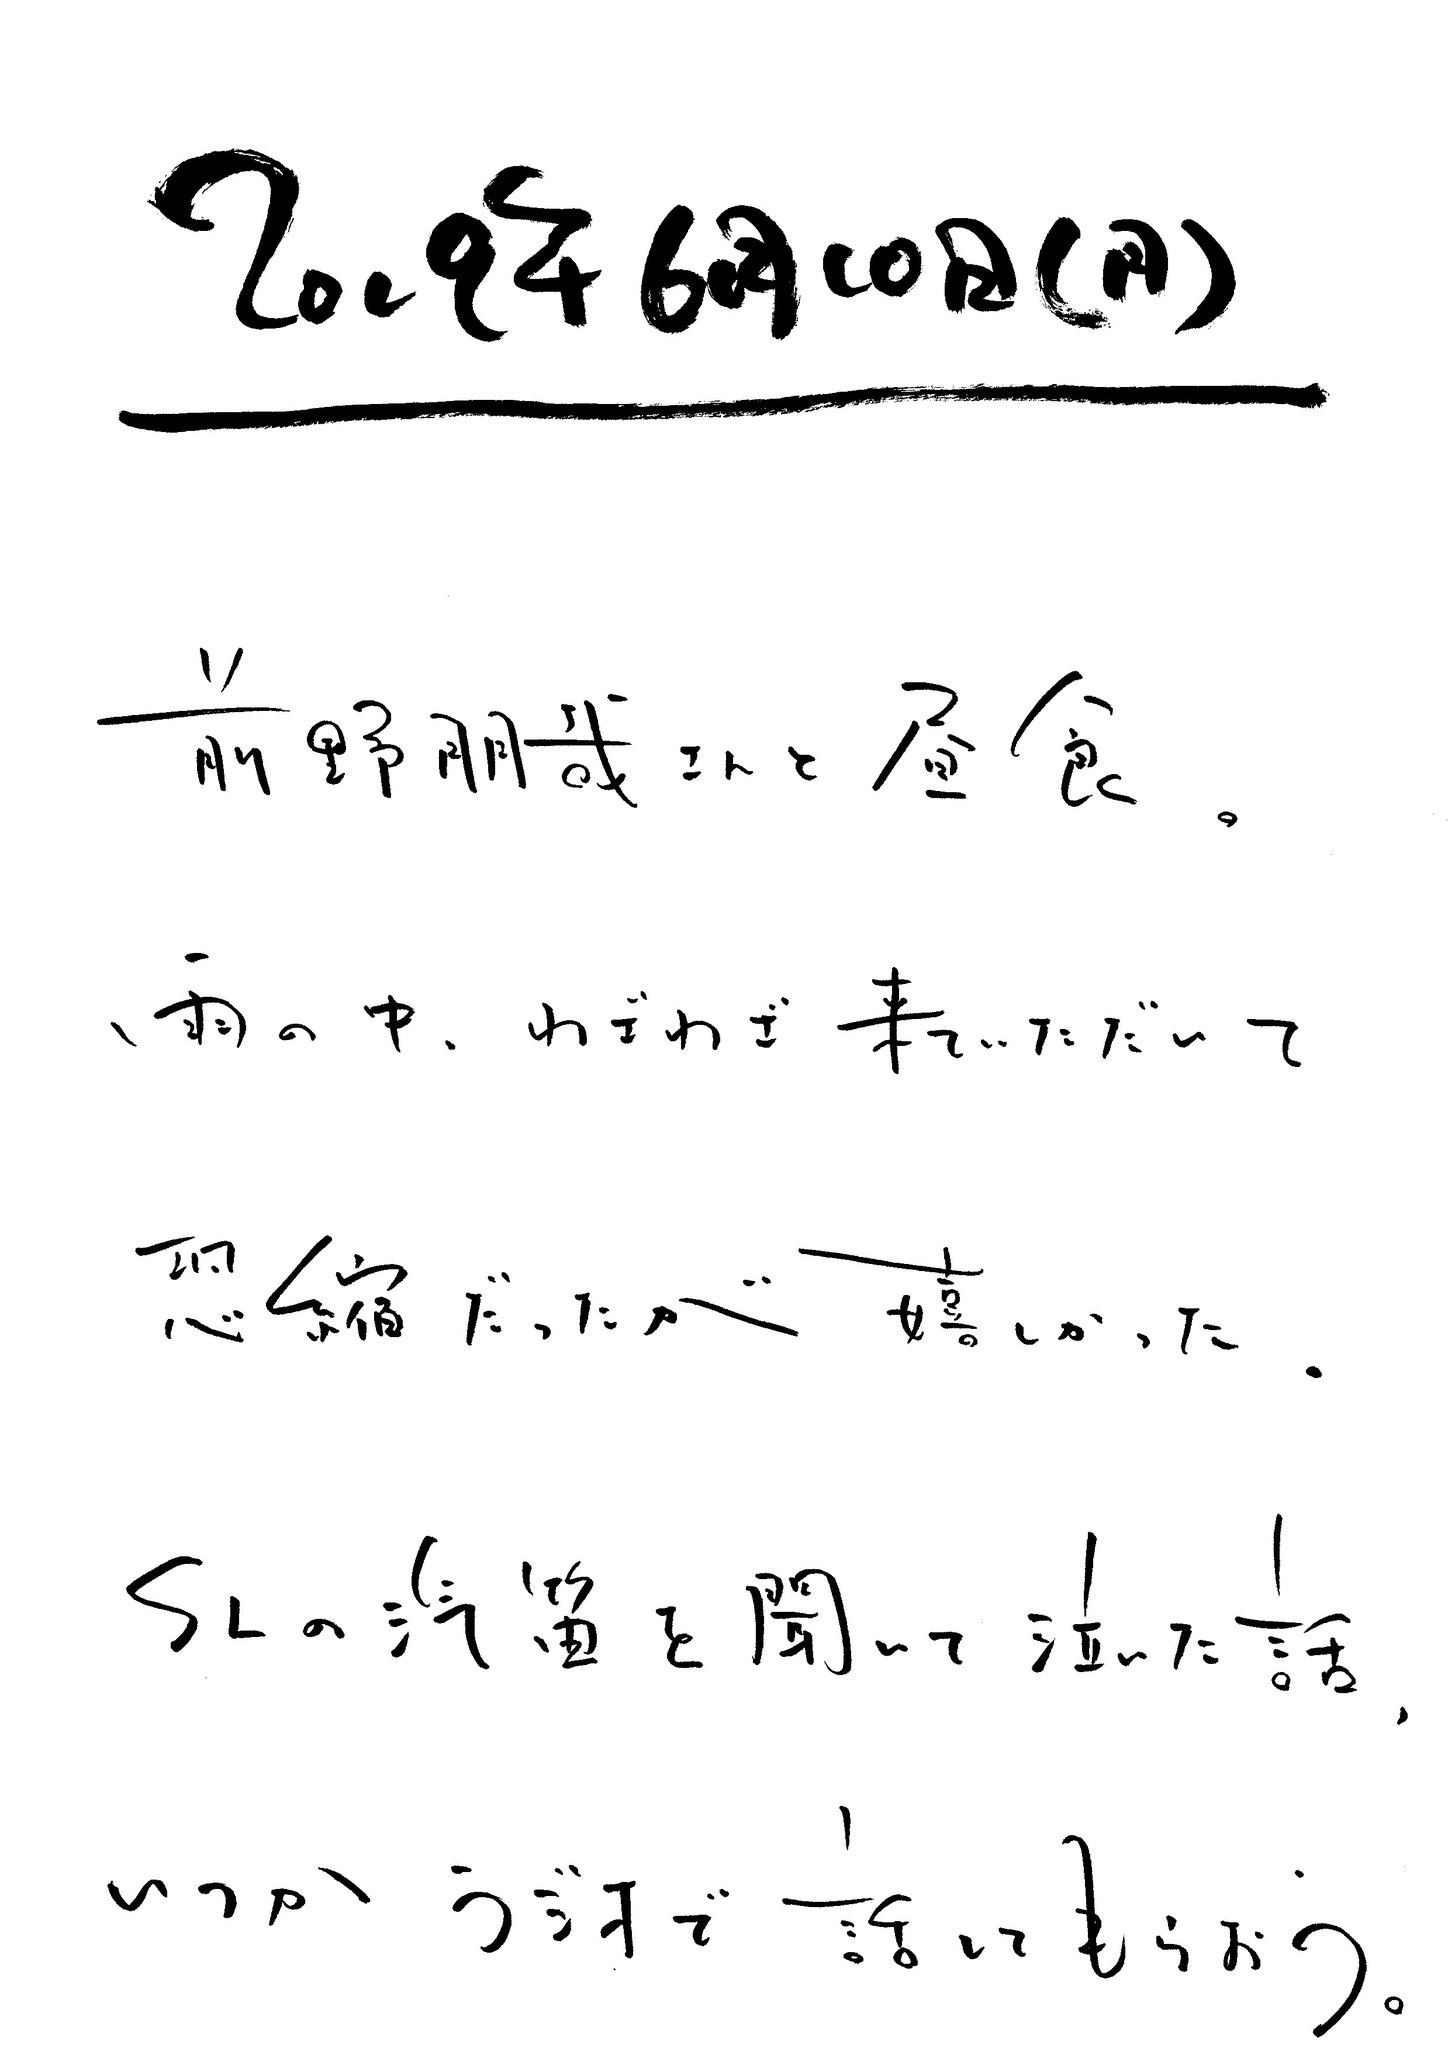 2019年6月10日(月)
前野朋哉さんと昼食。
雨の中、わざわざ来ていただいて
恐縮だったが嬉しかった。
SLの汽笛を聞いて泣いた話、
いつかラジオで話してもらおう。